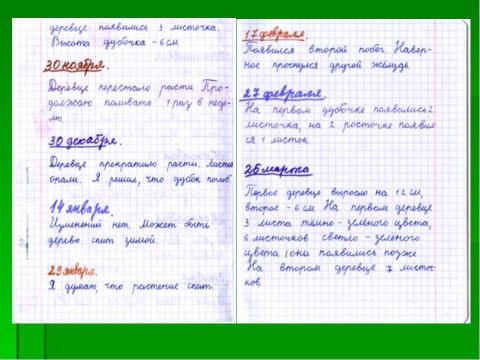 деревце появились 3 листочка.
Высота дубочка - 6 см
30 ноября.
Деревце перестало расти. Про-
должаю поливать 1 раз в неде-
лю.
30 декабря.
Деревце прекратило расти. Листья
опали. Я решил, что дубок погиб.
14 января.
Изменений нет. Может быть
дерево спит зимой.
29 января.
Я думаю, что растение спит.
17 февраля.
Появился второй побег. Навер-
ное проснулся другой жёлудь.
27 февраля.
На первом дубочке появились 2
листочка, на 2 росточке появил
ся 1 листок.
26 марта
Первое деревце выросло на 12 см,
второе - 6 см На первом деревце
3 листа тёмно - зелёного цвета,
6 листочков светло - зелёного
цвета (они появились позже
На втором деревце 7 листоч-
ков